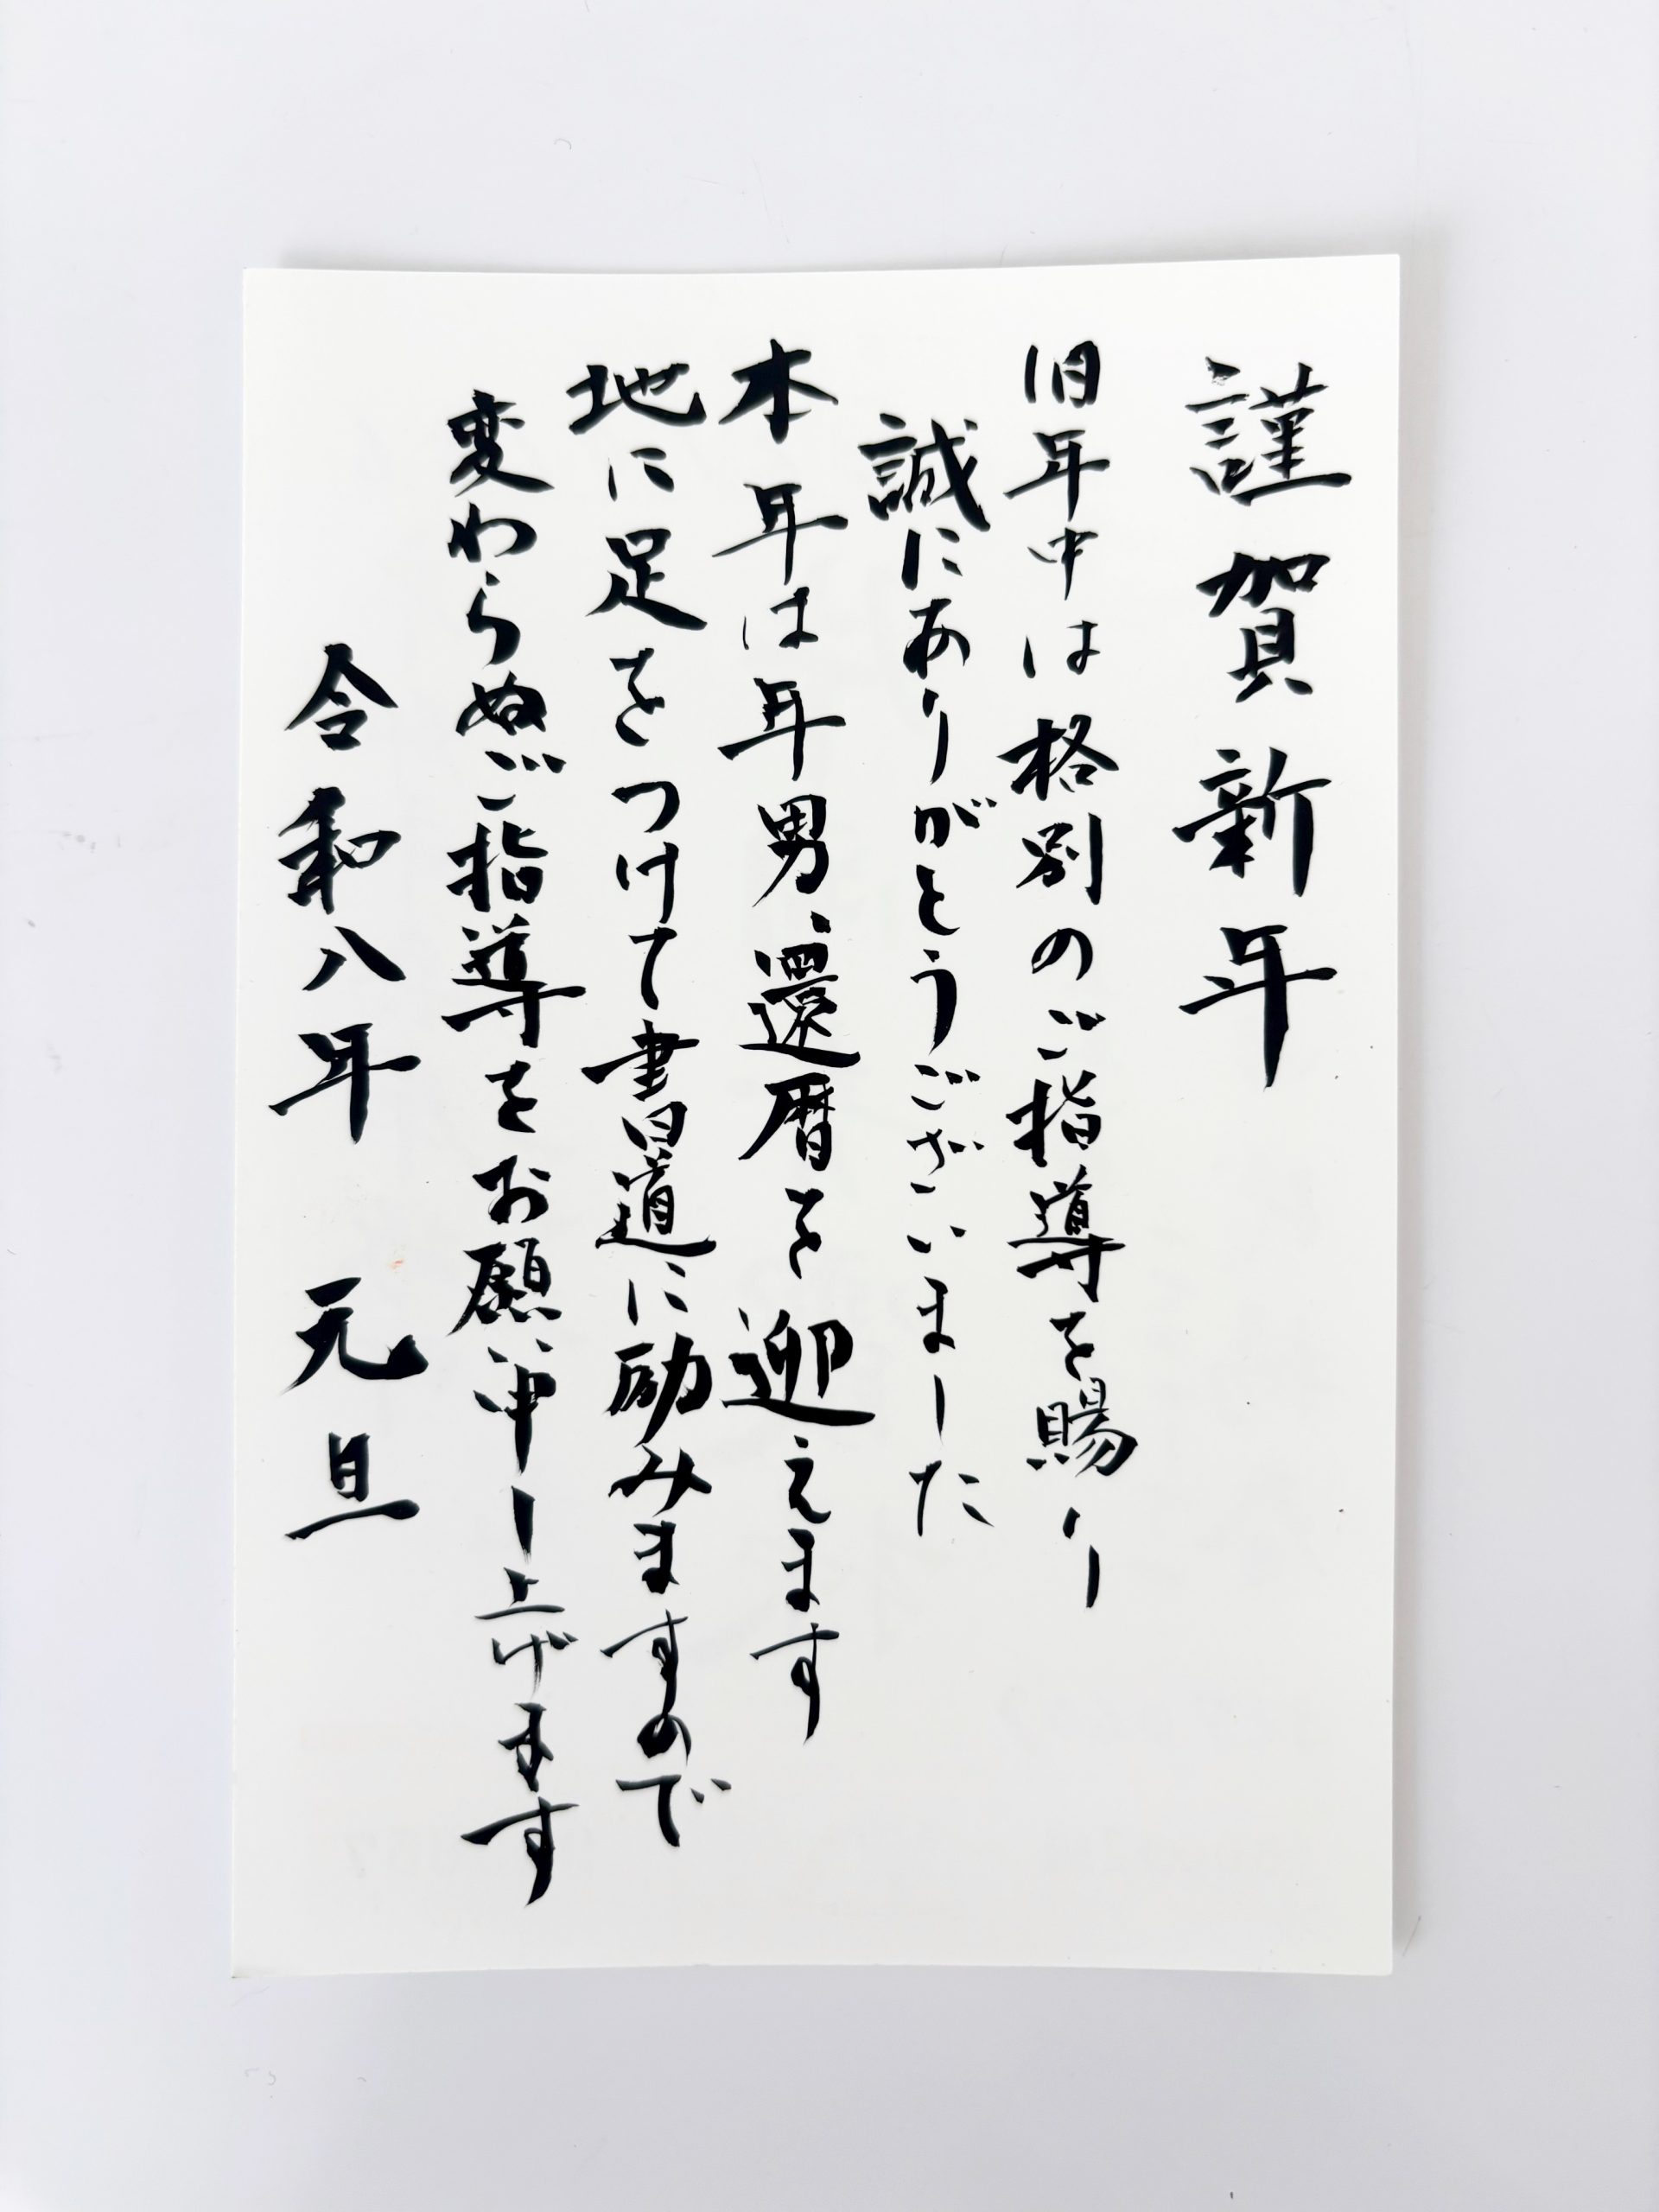 謹賀新年
旧年中は格別のご指導を賜り
誠にありがとうございました
本年は年男、還暦を迎えます
地に足をつけて書道に励みますので
変わらぬご指導をお願い申し上げます
令和八年 元旦